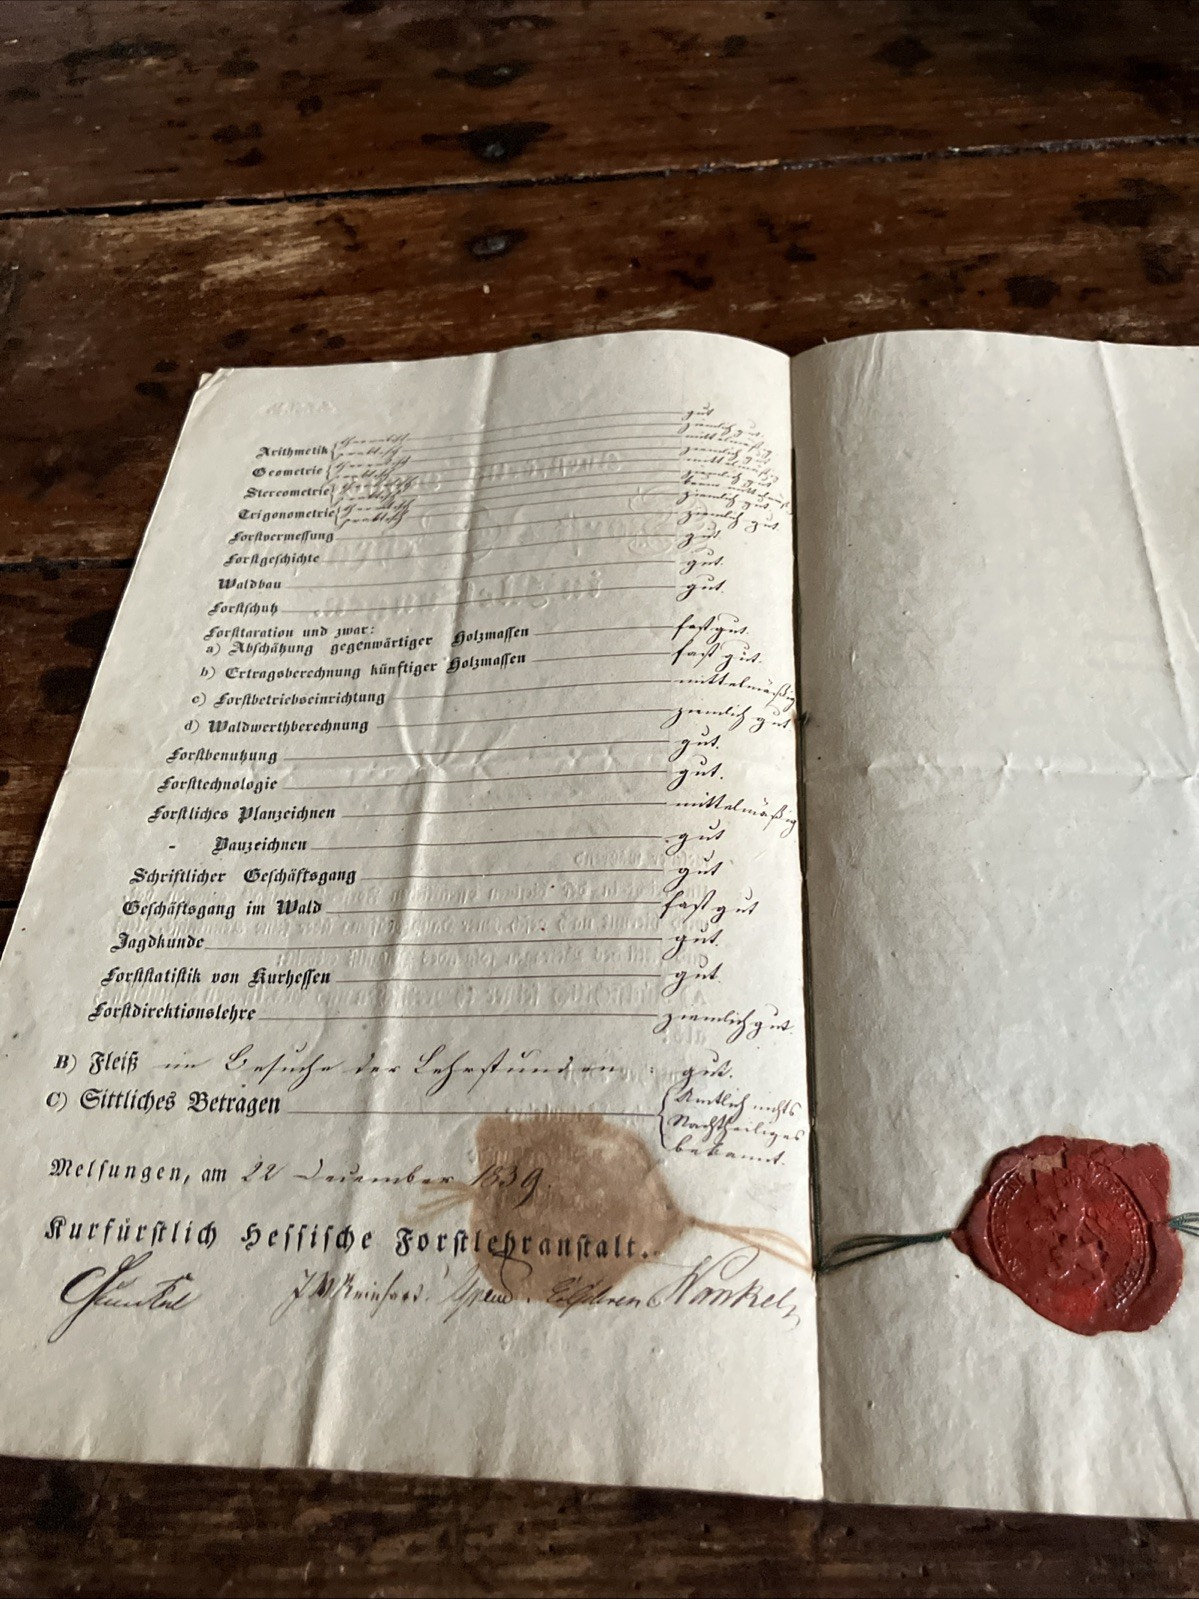 Arithmetik { theoretisch gut
praktisch ziemlich gut.
Geometrie { theoretisch mittelmäßig
praktisch ziemlich gut
Stereometrie { theoretisch mittelmäßig
praktisch ziemlich gut
Trigonometrie { theoretisch kaum mittelmäßig
praktisch ziemlich gut.
Forstvermessung ziemlich gut.
Forstgeschichte gut.
Waldbau gut.
Forstschutz gut.
Forsttaxation und zwar:
a) Abschätzung gegenwärtiger Holzmassen fast gut.
b) Ertragsberechnung künftiger Holzmassen fast gut.
c) Forstbetriebseinrichtung mittelmäßig
d) Waldwerthberechnung ziemlich gut.
Forstbenutzung gut.
Forsttechnologie gut.
Forstliches Planzeichnen mittelmäßig
- Bauzeichnen gut
Schriftlicher Geschäftsgang gut
Geschäftsgang im Wald fast gut
Jagdkunde gut.
Forststatistik von Kurhessen gut.
Forstdirektionslehre ziemlich gut.
B) Fleiß im Besuche der Lehrstunden: gut.
C) Sittliches Betragen { Amtlich nichts
Nachtheiliges
bekannt.
Melsungen, am 22 December 1839.
Kurfürstlich Hessische Forstlehranstalt.